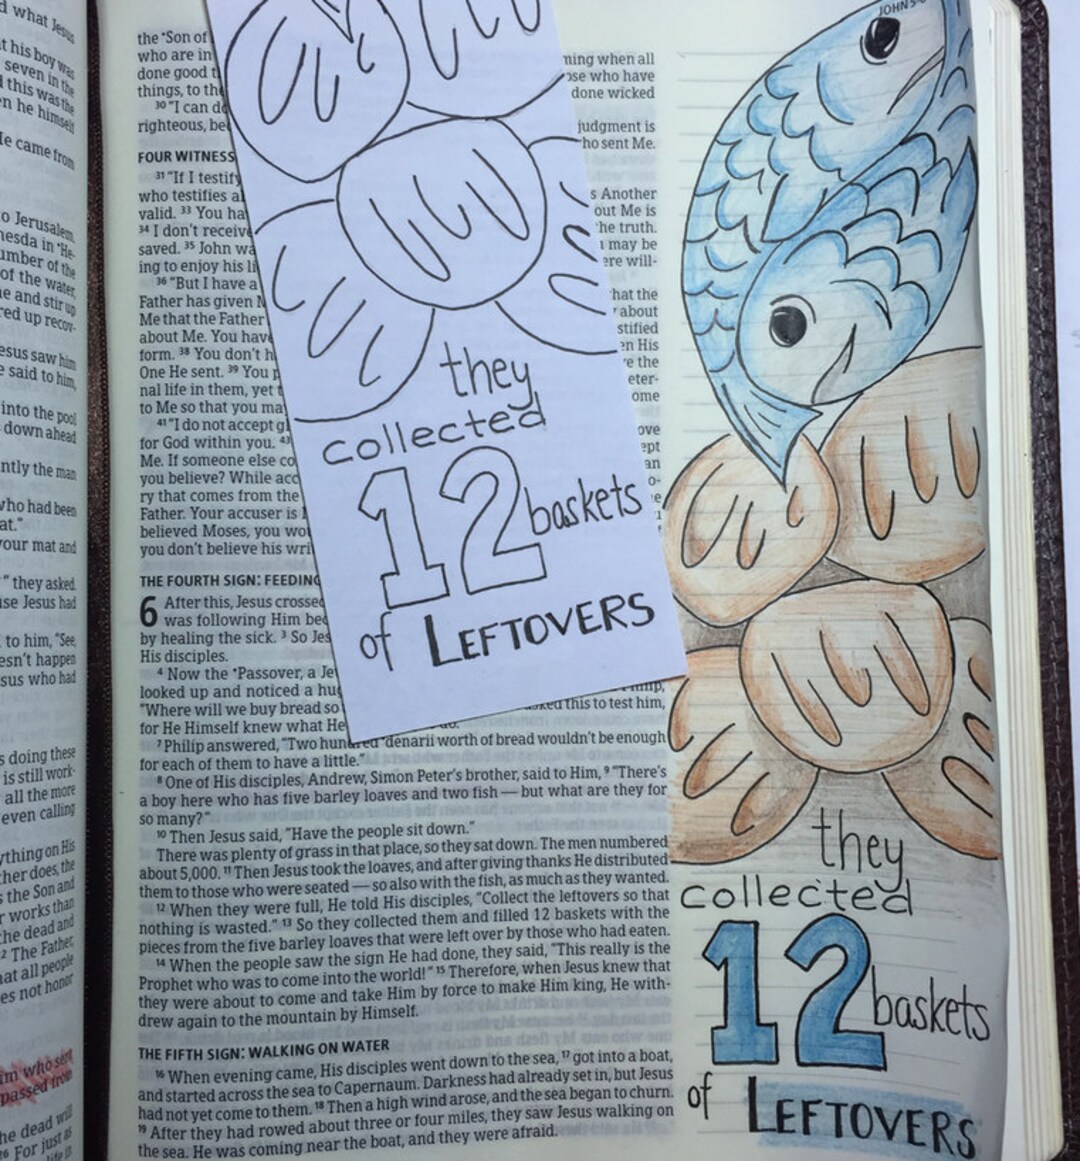 d what Jesus
t his boy was
seven in the
d this was the
en he himself
He came from
o Jerusalem.
hesda in "He-
umber of the
of the water,
ne and stir up
red up recov-
esus saw him
e said to him,
into the pool
down ahead
ntly the man
who had been
at."
our mat and
" they asked.
use Jesus had
to him, "See,
esn't happen
sus who had
s doing these
is still work-
all the more
even calling
ything on His
her does, the
s the Son and
r works than
he dead and
2 The Father,
at all people
es not honor
im who sent
passed from
he dead will
26 For just as
life in
the *Son of
who are in
done good t
things, to th
30 "I can do
righteous, be
FOUR WITNESS
31 "If I testify
who testifies a
valid. 33 You ha
34 I don't receive
saved. 35 John wa
ing to enjoy his li
36 "But I have a
Father has given M
Me that the Father
about Me. You have
form. 38 You don't h
One He sent. 39 You p
nal life in them, yet t
to Me so that you ma
41 "I do not accept gl
for God within you. 43
Me. If someone else co
you believe? While acc
ry that comes from the
Father. Your accuser is
believed Moses, you wo
you don't believe his wri
ming when all
ose who have
done wicked
judgment is
ho sent Me.
s Another
out Me is
he truth.
may be
ere will-
hat the
about
stified
en His
e the
eter-
ome
ove
ept
an
o-
they
collected
12 baskets
of LEFTOVERS
THE FOURTH SIGN: FEEDING
6 After this, Jesus crossed
was following Him bec
by healing the sick. 3 So Jes
His disciples.
4 Now the *Passover, a Je
looked up and noticed a hug
"Where will we buy bread so asked this to test him,
for He Himself knew what He do.
7 Philip answered, "Two hundred *denarii worth of bread wouldn't be enough
for each of them to have a little."
8 One of His disciples, Andrew, Simon Peter's brother, said to Him, 9 "There's
a boy here who has five barley loaves and two fish — but what are they for
so many?"
10 Then Jesus said, "Have the people sit down."
There was plenty of grass in that place, so they sat down. The men numbered
about 5,000. 11 Then Jesus took the loaves, and after giving thanks He distributed
them to those who were seated — so also with the fish, as much as they wanted.
12 When they were full, He told His disciples, "Collect the leftovers so that
nothing is wasted." 13 So they collected them and filled 12 baskets with the
pieces from the five barley loaves that were left over by those who had eaten.
14 When the people saw the sign He had done, they said, "This really is the
Prophet who was to come into the world!" 15 Therefore, when Jesus knew that
they were about to come and take Him by force to make Him king, He with-
drew again to the mountain by Himself.
THE FIFTH SIGN: WALKING ON WATER
16 When evening came, His disciples went down to the sea, 17 got into a boat,
and started across the sea to Capernaum. Darkness had already set in, but Jesus
had not yet come to them. 18 Then a high wind arose, and the sea began to churn.
19 After they had rowed about three or four miles, they saw Jesus walking on
the sea. He was coming near the boat, and they were afraid.
they
collected
12 baskets
of LEFTOVERS